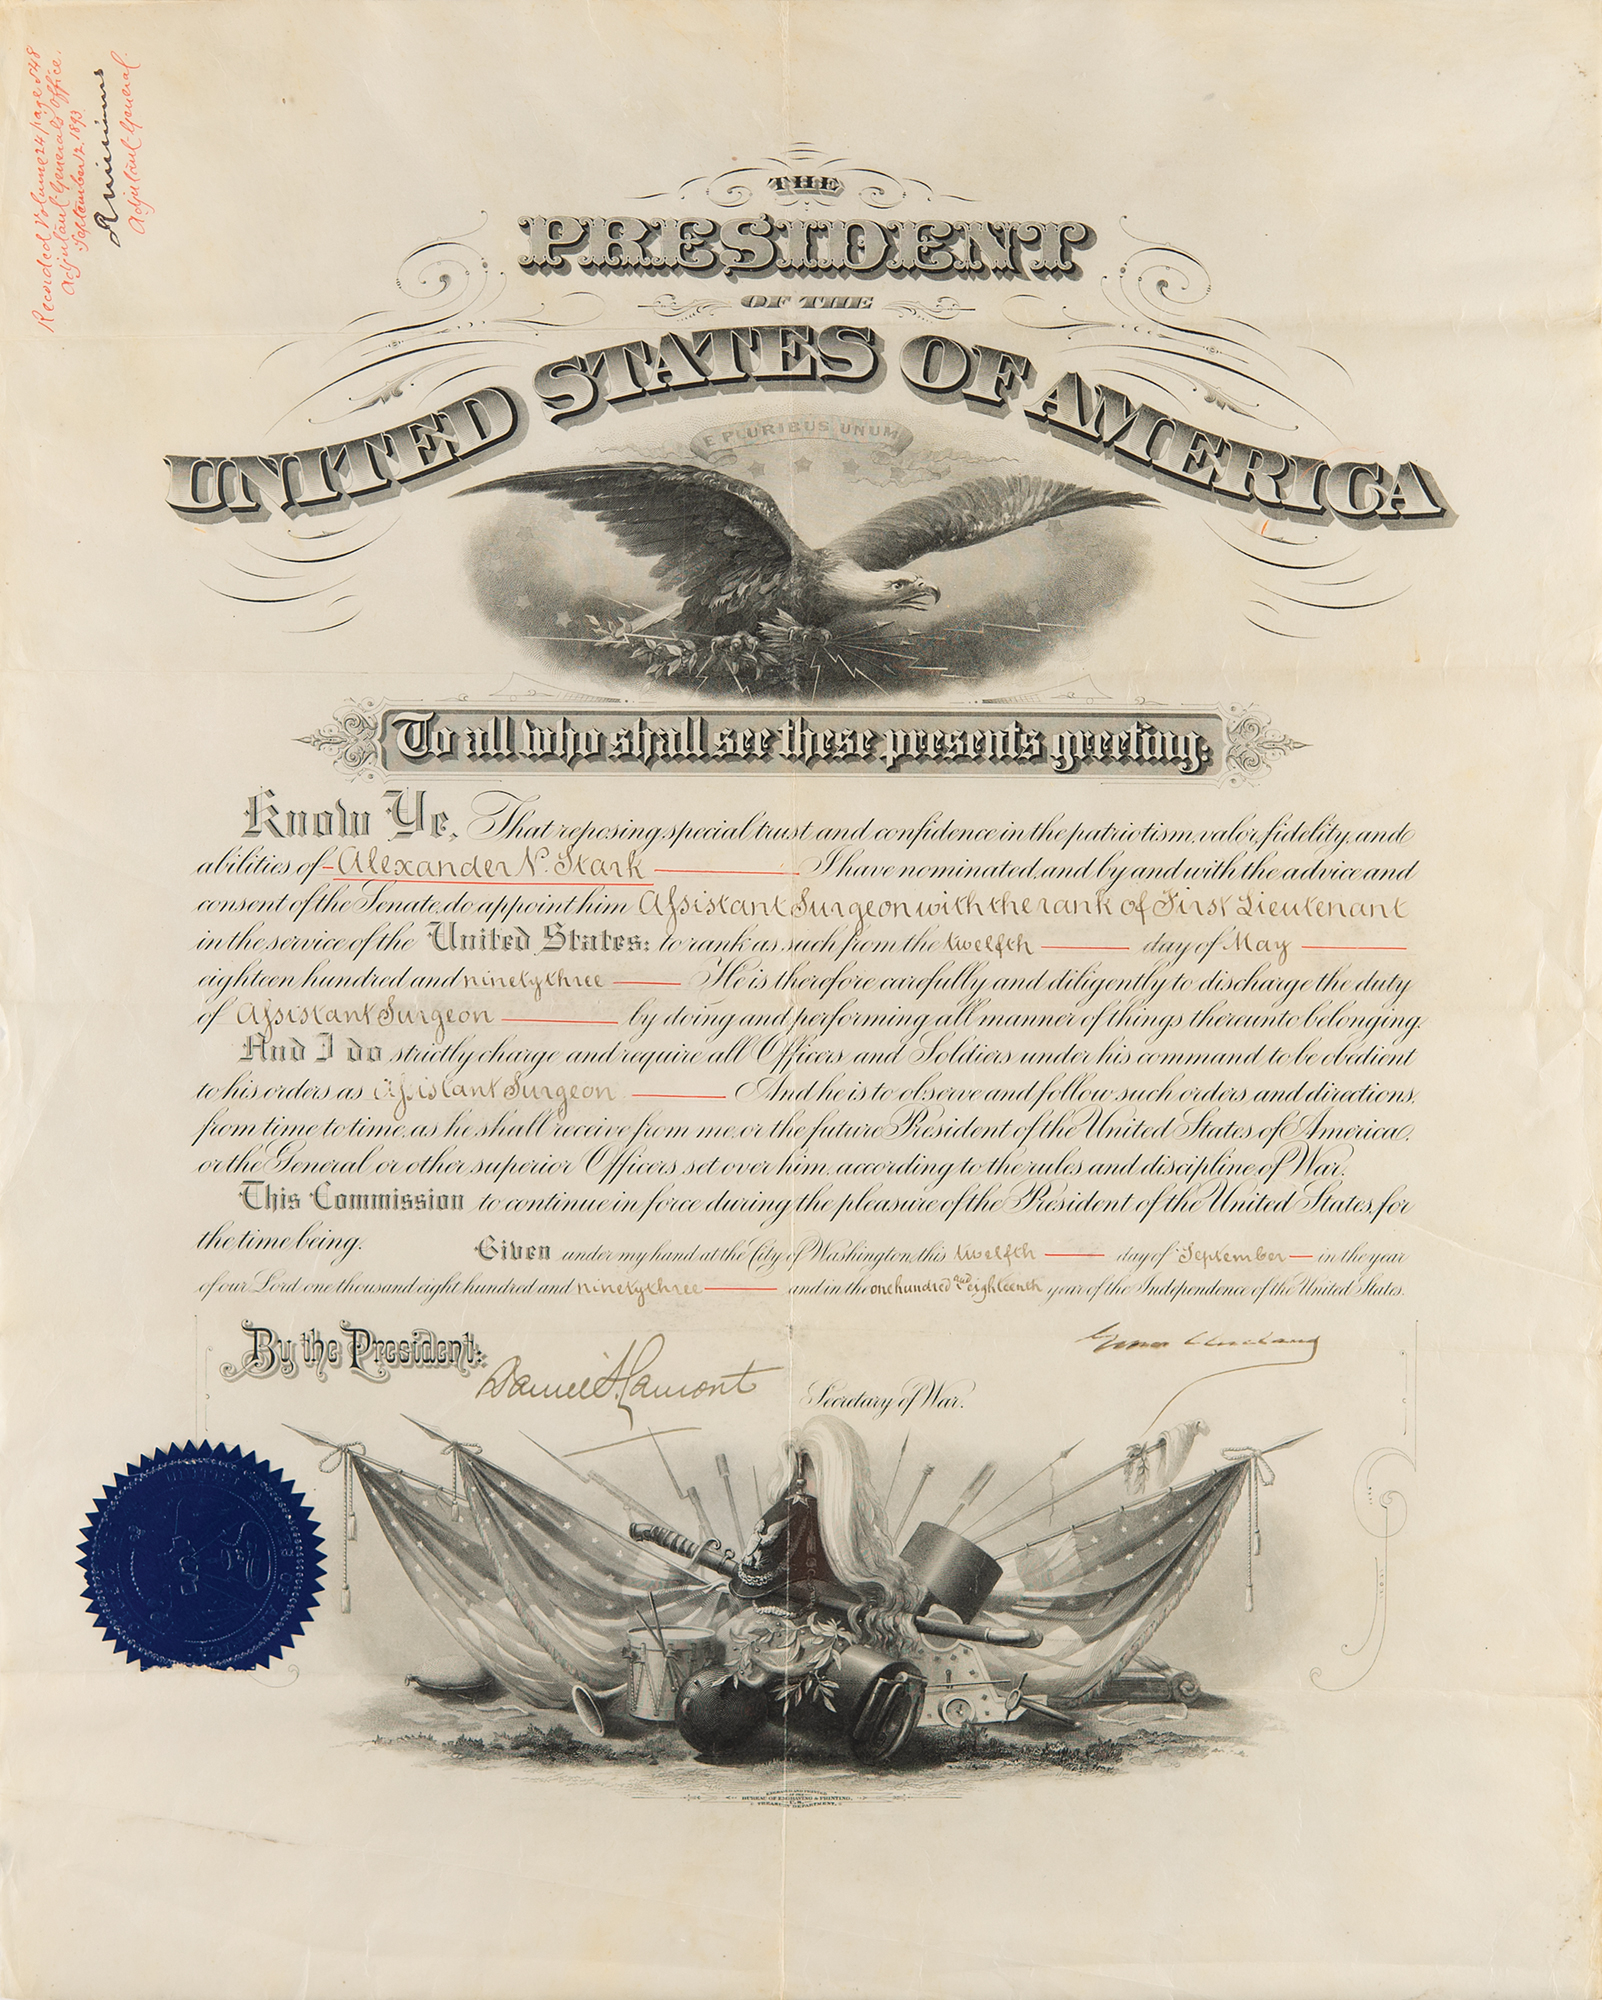 Recorded Volume 24 page 548
Adjutant General's Office
September 12. 1893
Adjutant General.
THE
PRESIDENT
OF THE
UNITED STATES OF AMERICA
E PLURIBUS UNUM
To all who shall see these presents greeting:
Know Ye, That reposing special trust and confidence in the patriotism, valor, fidelity, and
abilities of Alexander N. Stark I have nominated, and by and with the advice and
consent of the Senate, do appoint him Assistant Surgeon with the rank of First Lieutenant
in the service of the United States: to rank as such from the twelfth day of May
eighteen hundred and ninety three He is therefore carefully and diligently to discharge the duty
of Assistant Surgeon by doing and performing all manner of things thereunto belonging.
And I do strictly charge and require all Officers and Soldiers under his command to be obedient
to his orders as Assistant Surgeon And he is to observe and follow such orders, and directions,
from time to time, as he shall receive from me, or the future President of the United States of America,
or the General or other superior Officers set over him, according to the rules and discipline of War.
This Commission to continue in force during the pleasure of the President of the United States, for
the time being. Given under my hand at the City of Washington, this twelfth day of September in the year
of our Lord one thousand eight hundred and ninety three and in the one hundred and eighteenth year of the Independence of the United States.
Grover Cleveland
By the President:
Daniel S. Lamont Secretary of War.
BUREAU OF ENGRAVING & PRINTING.
TREASURY DEPARTMENT.